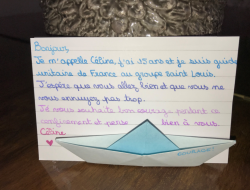 Bonjour,
Je m'appelle Céline, j'ai 15 ans et je suis guide
unitaire de France au groupe Saint Louis.
J'espère que vous allez bien et que vous ne
vous ennuyez pas trop.
Je vous souhaite bon courage pendant ce
confinement et pense bien à vous.
Céline